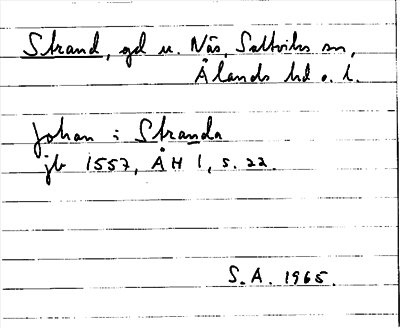 Strand, gd u. Näs, Saltviks sn,
Ålands hd o. l.
Johan i Stranda
jb 1557, ÅH 1, s. 22.
S.A. 1965.